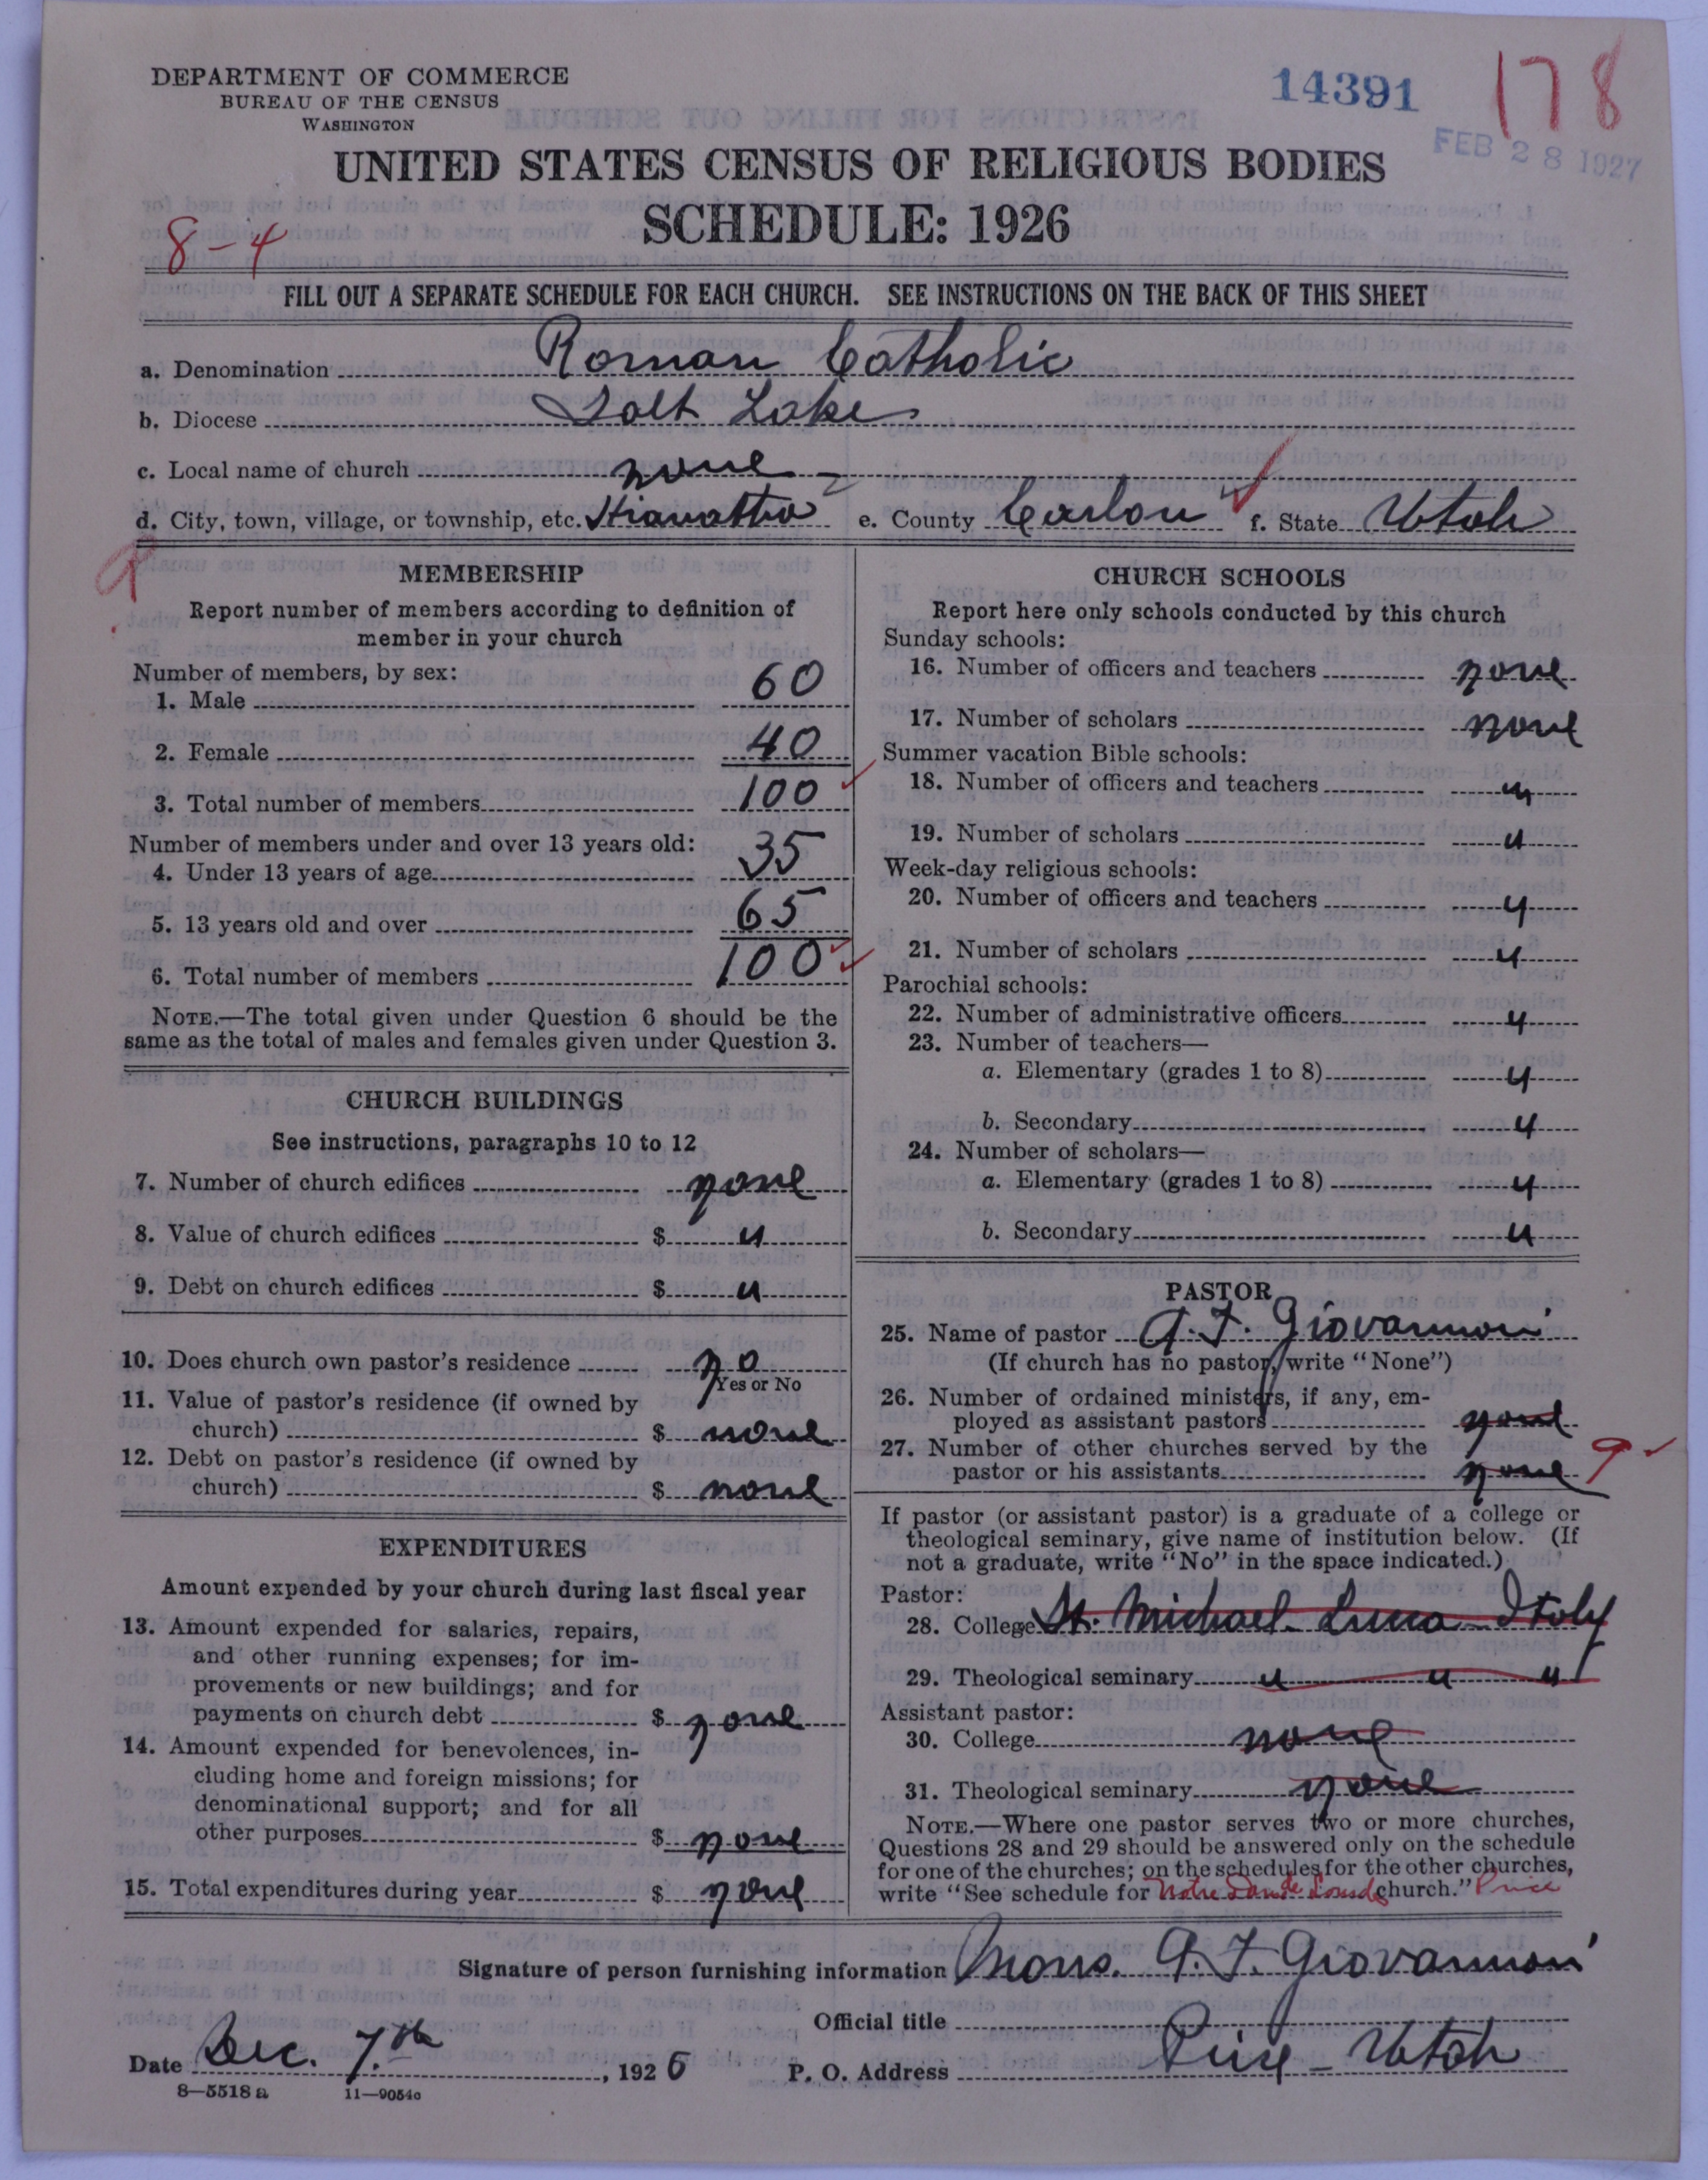 DEPARTMENT OF COMMERCE
BUREAU OF THE CENSUS
WASHINGTON
14391
178
FEB 28 1927
UNITED STATES CENSUS OF RELIGIOUS BODIES
SCHEDULE: 1926
8-4
FILL OUT A SEPARATE SCHEDULE FOR EACH CHURCH. SEE INSTRUCTIONS ON THE BACK OF THIS SHEET
a. Denomination Roman Catholic
b. Diocese Salt Lake
c. Local name of church none
d. City, town, village, or township, etc. Hiawatha e. County Carbon f. State Utah
MEMBERSHIP
Report number of members according to definition of
member in your church
Number of members, by sex:
1. Male 60
2. Female 40
3. Total number of members 100
Number of members under and over 13 years old:
4. Under 13 years of age 35
5. 13 years old and over 65
6. Total number of members 100
NOTE.—The total given under Question 6 should be the
same as the total of males and females given under Question 3.
CHURCH BUILDINGS
See instructions, paragraphs 10 to 12
7. Number of church edifices none
8. Value of church edifices $ "
9. Debt on church edifices $ "
10. Does church own pastor's residence no
Yes or No
11. Value of pastor's residence (if owned by
church) $ none
12. Debt on pastor's residence (if owned by
church) $ none
EXPENDITURES
Amount expended by your church during last fiscal year
13. Amount expended for salaries, repairs,
and other running expenses; for im-
provements or new buildings; and for
payments on church debt $ none
14. Amount expended for benevolences, in-
cluding home and foreign missions; for
denominational support; and for all
other purposes $ none
15. Total expenditures during year $ none
CHURCH SCHOOLS
Report here only schools conducted by this church
Sunday schools:
16. Number of officers and teachers none
17. Number of scholars none
Summer vacation Bible schools:
18. Number of officers and teachers "
19. Number of scholars "
Week-day religious schools:
20. Number of officers and teachers "
21. Number of scholars "
Parochial schools:
22. Number of administrative officers "
23. Number of teachers—
a. Elementary (grades 1 to 8) "
b. Secondary "
24. Number of scholars—
a. Elementary (grades 1 to 8) "
b. Secondary "
PASTOR
25. Name of pastor A. F. Giovannoni
(If church has no pastor, write "None")
26. Number of ordained ministers, if any, em-
ployed as assistant pastors none
27. Number of other churches served by the
pastor or his assistants none 9
If pastor (or assistant pastor) is a graduate of a college or
theological seminary, give name of institution below. (If
not a graduate, write "No" in the space indicated.)
Pastor:
28. College St. Michael Lucca Italy
29. Theological seminary " " "
Assistant pastor:
30. College none
31. Theological seminary none
NOTE.—Where one pastor serves two or more churches,
Questions 28 and 29 should be answered only on the schedule
for one of the churches; on the schedules for the other churches,
write "See schedule for Notre Dame de Lourdes church." Price
Signature of person furnishing information Mons. A. F. Giovannoni
Official title
Date Dec. 7th, 1926 P. O. Address Price - Utah
8—5518 a 11—9054c